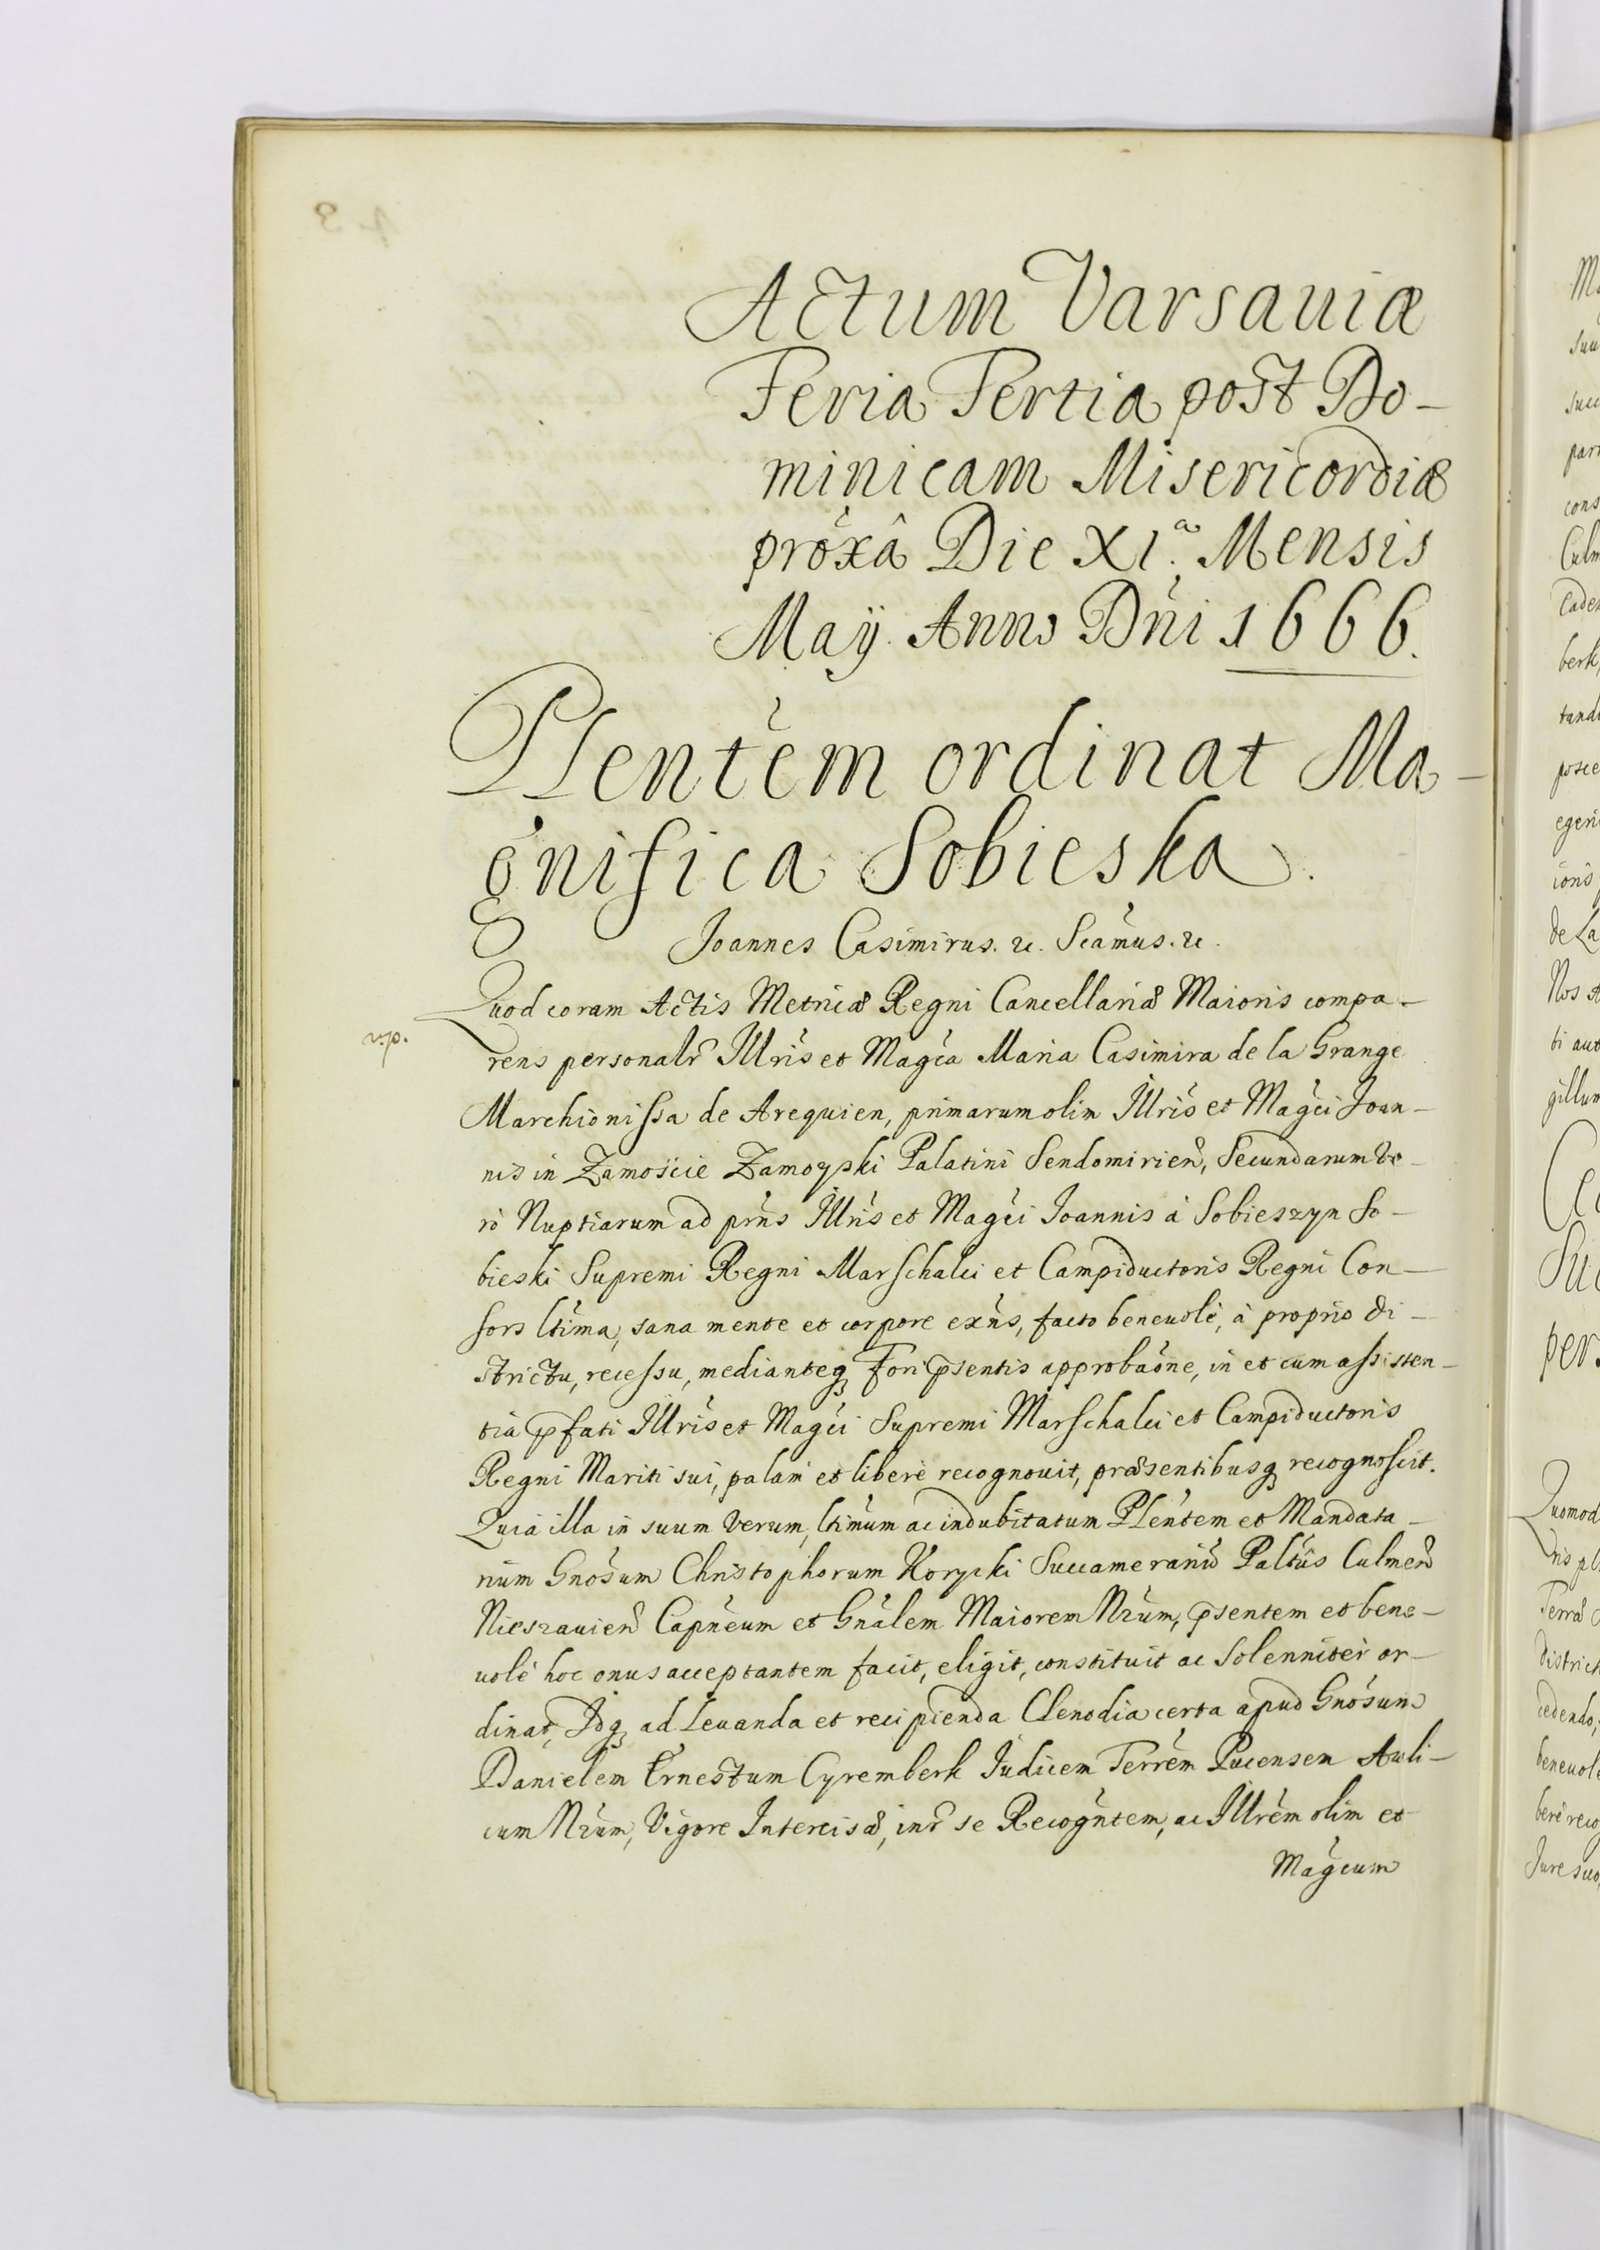 Actum Varsauiæ
Feria Tertia post Do-
minicam Misericordiæ
proxâ Die XI.a Mensis
Maÿ Anno Dni 1666.
Plentem ordinat Ma-
gnifica Sobieska.
Joannes Casimirus. &. Scamus. &.
Quod coram Actis Metricæ Regni Cancellariæ Maioris compa-
rens personalr Illris et Magca Maria Casimira de la Grange
Marchionissa de Arequien, primarum olim Illris et Magci Joan-
nis in Zamoscie Zamoyski Palatini Sendomirien, Secundarum ve-
rò Nuptiarum ad prns Illris et Magci Joannis à Sobieszyn So-
bieski Supremi Regni Marschalci et Campiductoris Regni Con-
sors ltima, sana mente et corpore exns, facto beneuolè, à proprio di-
strictu, recessu, medianteq Fori psentis approbaone, in et cum assisten-
tia pfati Illris et Magci Supremi Marschalci et Campiductoris
Regni Mariti sui, palam et liberè recognouit, præsentibusq recognoscit.
Quia illa in suum verum, ltimum ac indubitatum Plentem et Mandata-
rium Gnosum Christophorum Korycki Succamerariu Paltus Culmen
Nieszauien Capneum et Gnalem Maiorem Nrum, psentem et bene-
uolè hoc onus acceptantem facit, eligit, constituit ac Solenniter or-
dinat, Idq ad Leuanda et recipienda Clenodia certa apud Gnosum
Danielem Ernestum Cyremberk Iudicem Terrem Pucensem Auli-
cum Nrum, Vigore Intercisæ, inr se Recogntem, ac Illrem olim et
Magcum